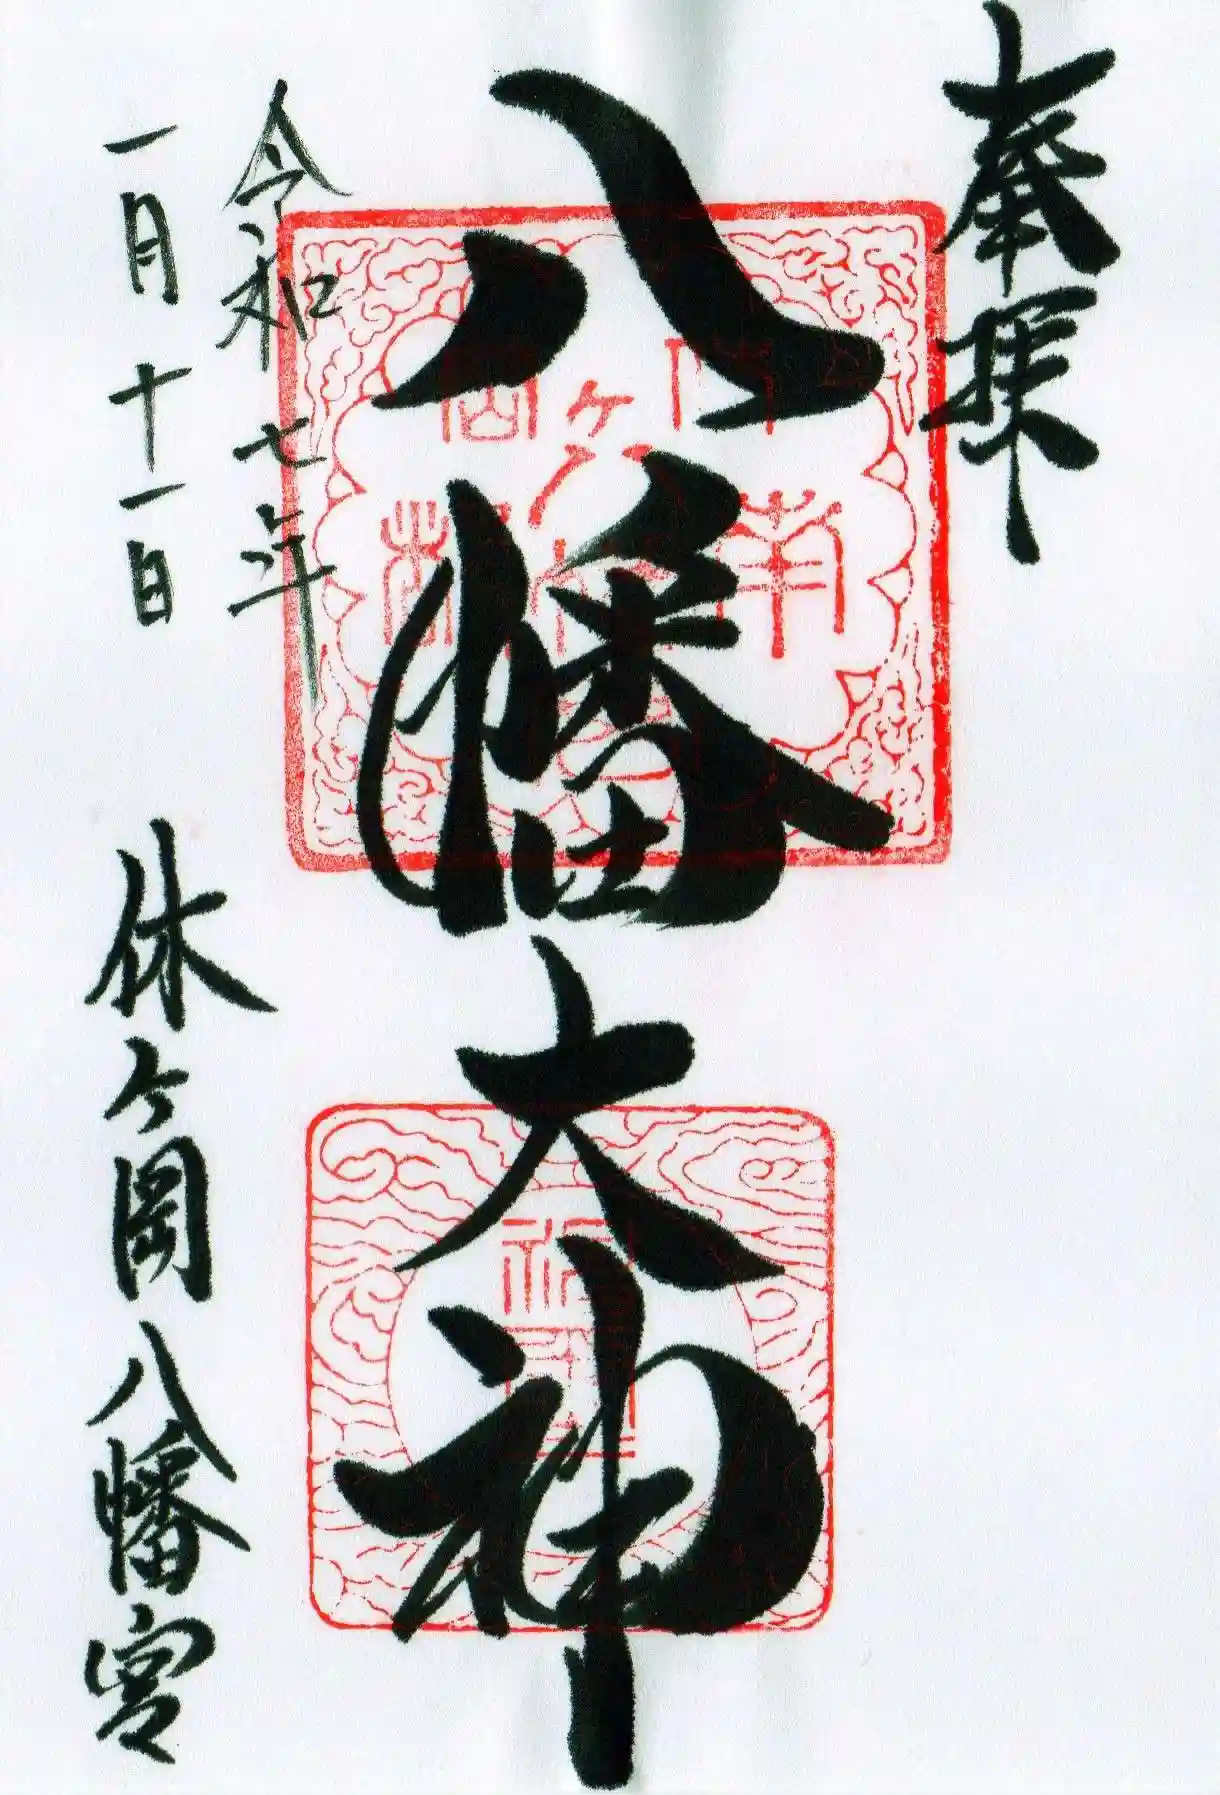 奉拝
八幡大神
令和七年
一月十一日
休ケ岡八幡宮